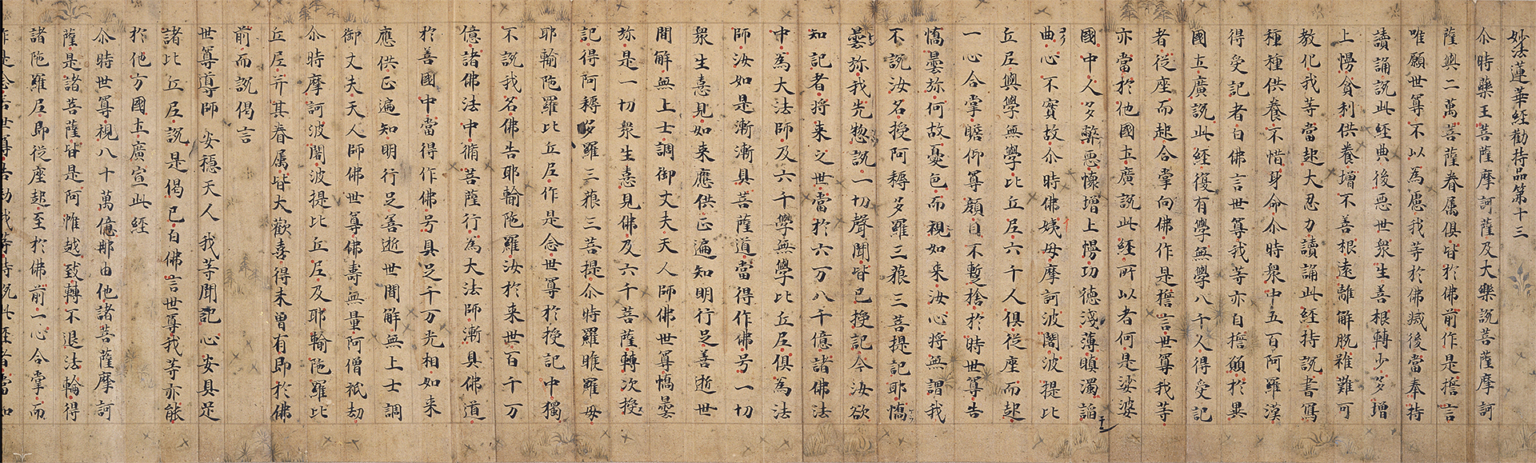 妙法蓮華經勸持品第十三
尒時藥王菩薩摩訶薩及大樂說菩薩摩訶
薩與二萬菩薩眷属俱皆於佛前作是擔言
唯願世尊不以為慮我等於佛滅後當奉持
讀誦說此經典後惡世衆生善根轉少多增
上慢貪利供養增不善根遠離解脫雖難可
教化我等當起大忍力讀誦此經持說書寫
種種供養不惜身命尒時衆中五百阿羅漢
得受記者白佛言世尊我等亦自擔願於異
國土廣說此經復有學無學八千人得受記
者從座而起合掌向佛作是擔言世尊我等
亦當於他國土廣說此經所以者何是娑婆
國中人多弊惡懷增上慢功德淺薄瞋濁諂
曲心不實故尒時佛姨母摩訶波闍波提比
丘尼與學無學比丘尼六千人俱從座而起
一心合掌瞻仰尊顏目不暫捨於時世尊告
憍曇弥何故憂色而視如来汝心將無謂我
不說汝名授阿耨多羅三藐三菩提記耶憍
曇弥我先惣說一切聲聞皆已授記今汝欲
知記者將来之世當於六万八千億諸佛法
中為大法師及六千學無學比丘尼俱為法
師汝如是漸漸具菩薩道當得作佛号一切
衆生憙見如来應供正遍知明行足善逝世
間解無上士調御丈夫天人師佛世尊憍曇
弥是一切衆生憙見佛及六千菩薩轉次授
記得阿耨多羅三藐三菩提尒時羅睺羅母
耶輸陁羅比丘尼作是念世尊於授記中獨
不說我名佛告耶輸陁羅汝於来世百千万
億諸佛法中脩菩薩行為大法師漸具佛道
於善國中當得作佛号具足千万光相如来
應供正遍知明行足善逝世間解無上士調
御丈夫天人師佛世尊佛壽無量阿僧祇劫
尒時摩訶波闍波提比丘尼及耶輸陁羅比
丘尼并其眷属皆大歡喜得未曾有即於佛
前而說偈言
世尊導師 安穩天人 我等聞記 心安具足
諸比丘尼說是偈已白佛言世尊我等亦能
於他方國土廣宣此經
尒時世尊視八十萬億那由他諸菩薩摩訶
薩是諸菩薩皆是阿惟越致轉不退法輪得
諸陁羅尼即從座起至於佛前一心合掌而
作是念若世尊告勑我等持說此經者當如